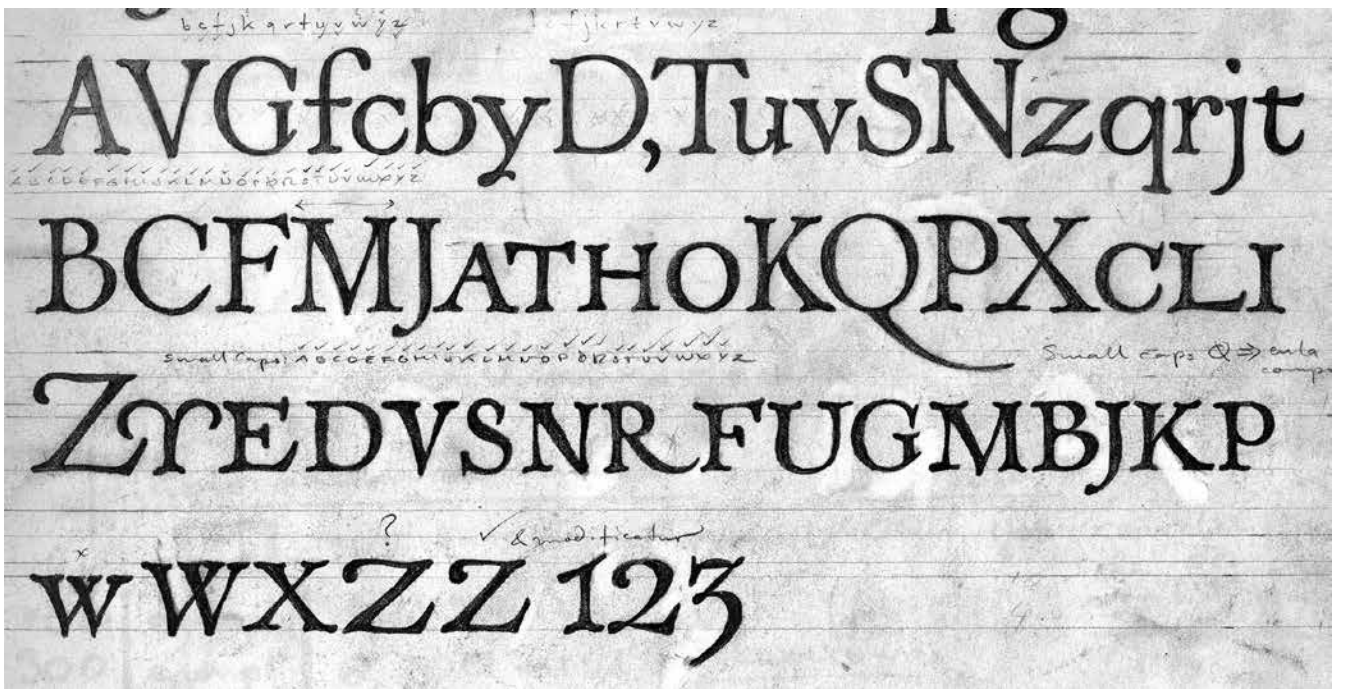 b c f j k q r t y v w y z c f j k r t v w y z
p g
AVGfcbyD,TuvSNzqrjt
A B C D E F G H I J K L M N O P Q R S T U V W X Y Z
BCFMJATHOKQPXCLI
Small Caps: A B C D E F G H I J K L M N O P Q R S T U V W X Y Z Small caps Q ⇒
ZϒEDVSNRFUGMBJKP
? ✓ & modificatur
x
wWXZZ123